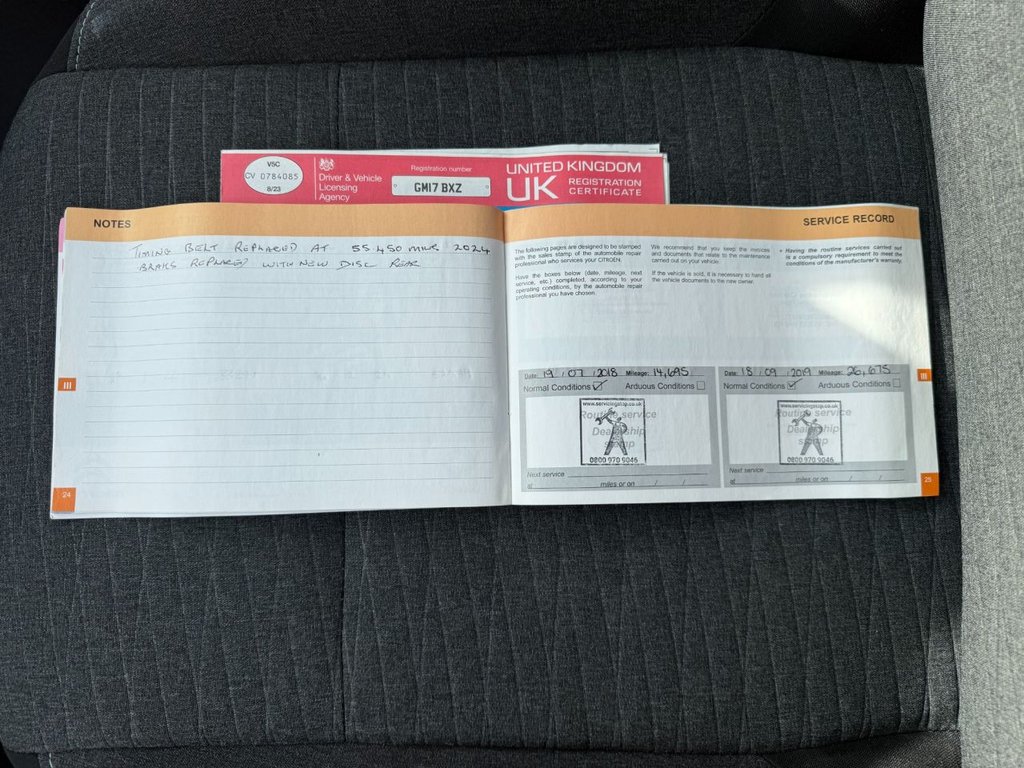 V5C
CV 0784085
8/23
Driver & Vehicle
Licensing
Agency
Registration number
GM17 BXZ
UNITED KINGDOM
UK REGISTRATION
CERTIFICATE
NOTES
TIMING BELT REPLACED AT 55450 MILES 2024
BRAKS REPLACED WITH NEW DISC REAR
III
24
SERVICE RECORD
The following pages are designed to be stamped
with the sales stamp of the automobile repair
professional who services your CITROËN.
Have the boxes below (date, mileage, next
service, etc.) completed, according to your
operating conditions, by the automobile repair
professional you have chosen.
We recommend that you keep the invoices
and documents that relate to the maintenance
carried out on your vehicle.
If the vehicle is sold, it is necessary to hand all
the vehicle documents to the new owner.
• Having the routine services carried out
is a compulsory requirement to meet the
conditions of the manufacturer's warranty.
Date: 19 / 07 / 2018 Mileage: 14,695
Normal Conditions Arduous Conditions
www.servicingstop.co.uk
Routine service
Dealership
stamp
0800 970 9046
Next service
at miles or on / /
Date: 18 / 09 / 2019 Mileage: 26,675
Normal Conditions Arduous Conditions
www.servicingstop.co.uk
Routine service
Dealership
stamp
0800 970 9046
Next service
at miles or on / /
III
25